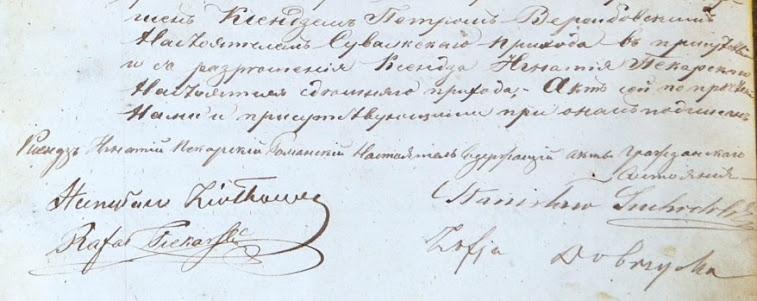 шенъ Ксендземъ Петромъ Вероибовскимъ
Настоятелемъ Сувалкскаго прихода въ присутствіи
и съ разрѣшенія Ксендза Игнатія Пекарскаго
Настоятеля здѣшняго прихода.- Актъ сей по прочтеніи
Нами и присутствующими при ономъ подписанъ
Ксендзъ Игнатій Пекарскій Настоятель содержащій актъ Гражданскаго
состоянія
Stanisław
Rafał Piekarski
Zofja Dobrzyska